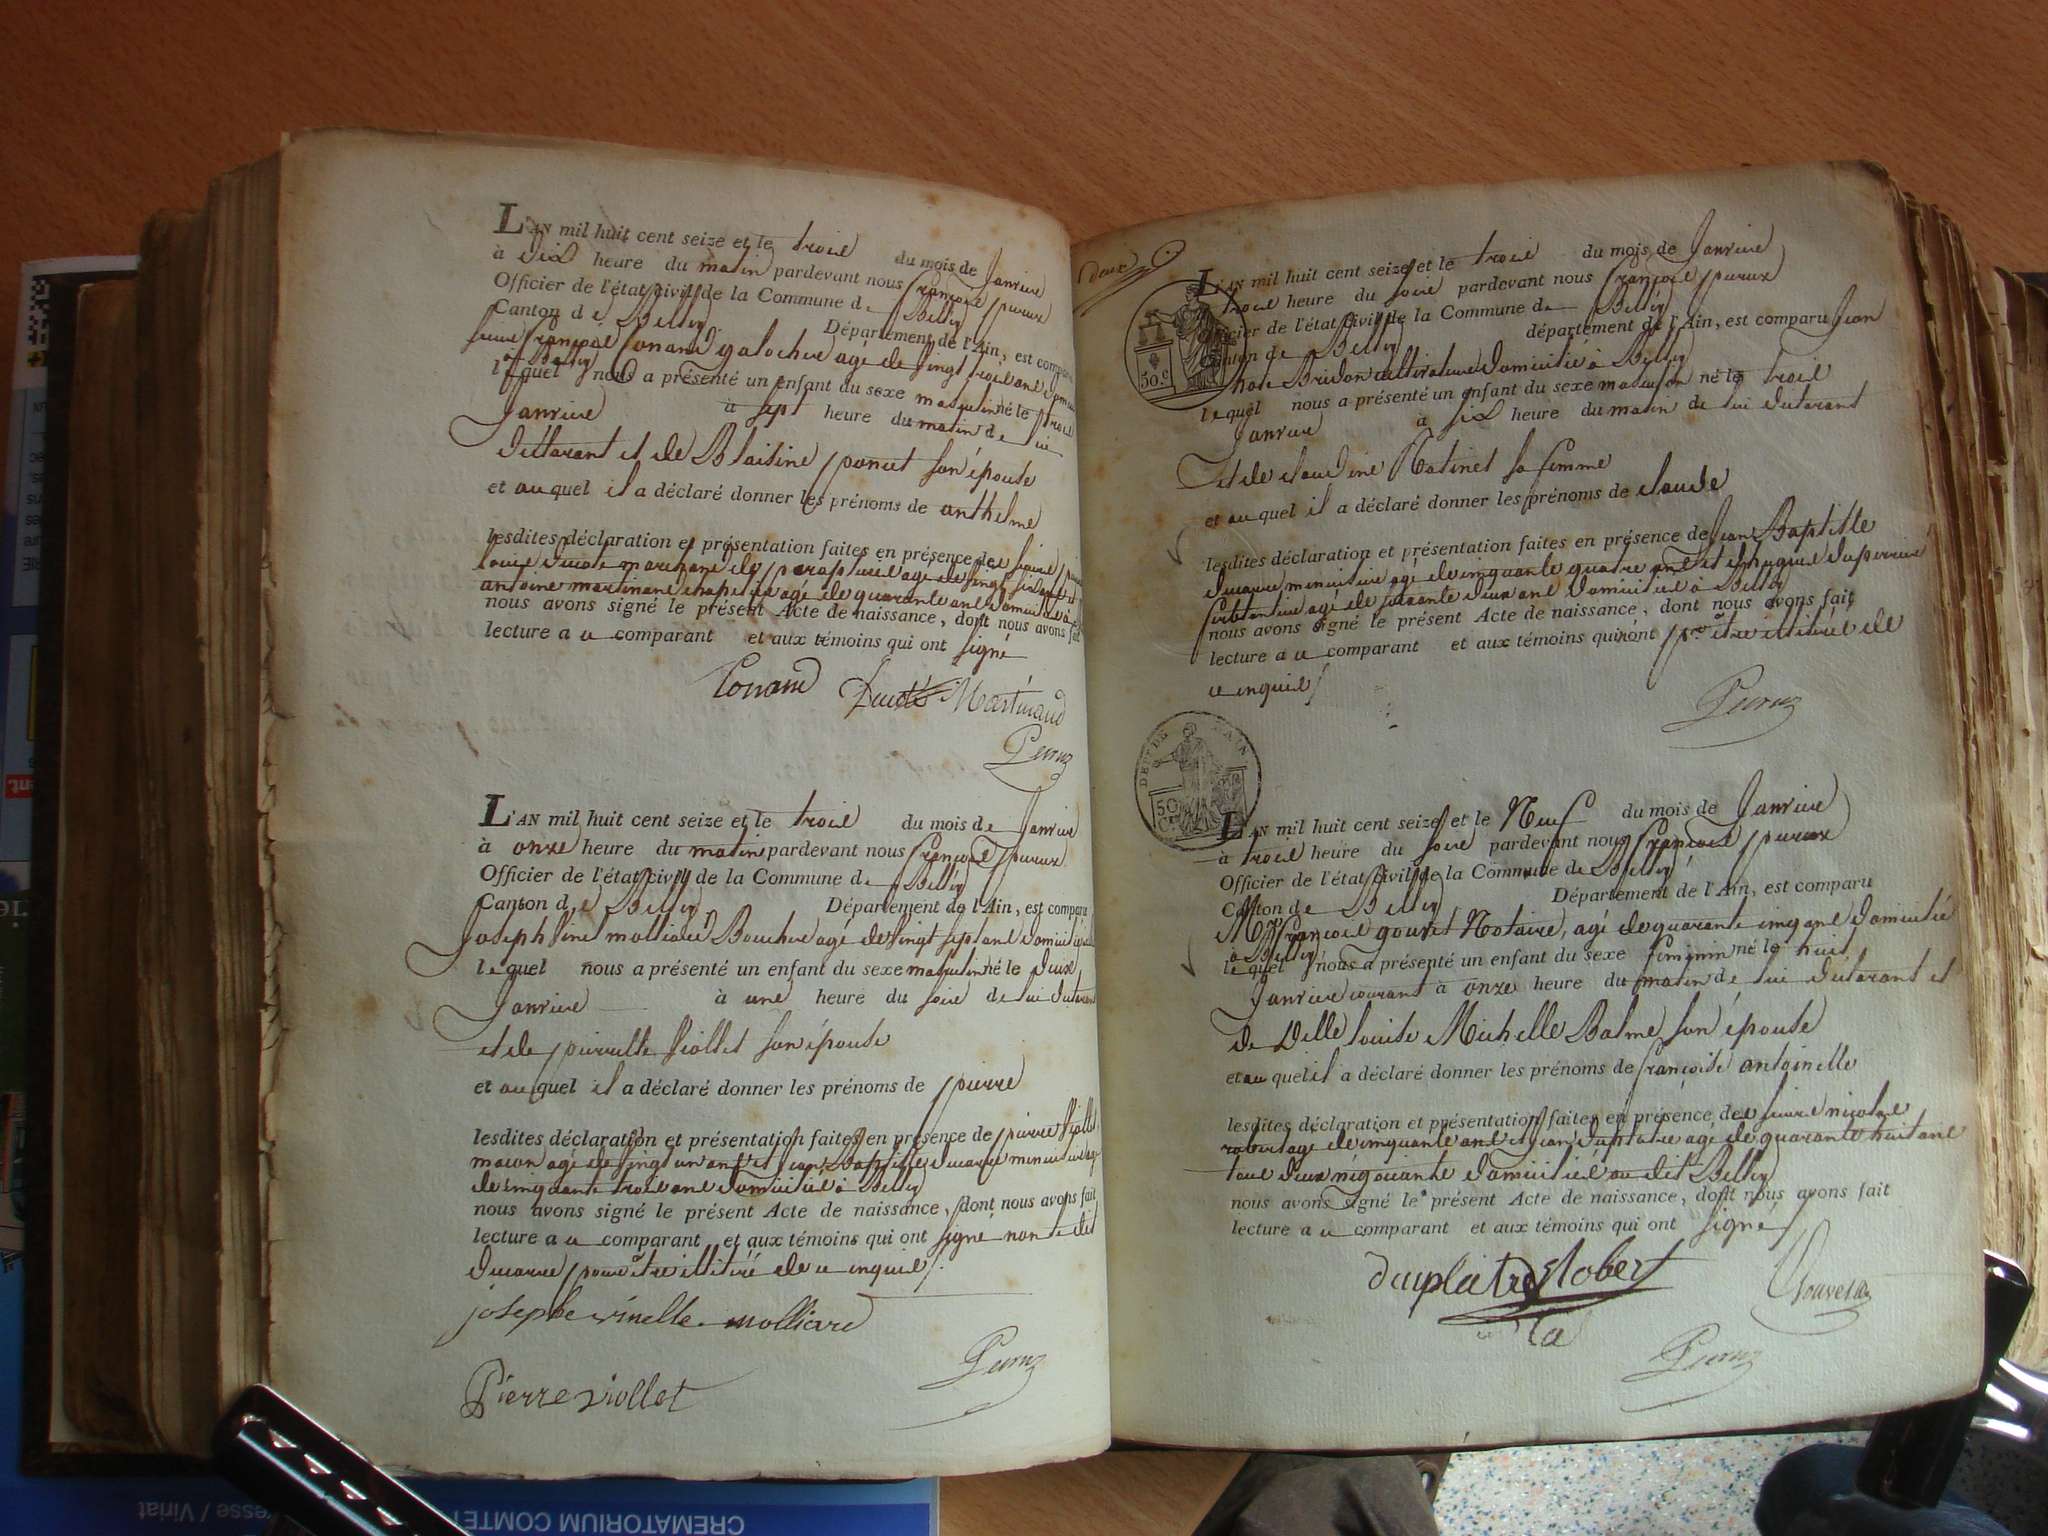 L'AN mil huit cent seize et le trois du mois de Janvier
à dix heure du matin pardevant nous françois peruux
Officier de l'état civil de la Commune de Belley
Canton de Belley Département de l'Ain, est comparu
sieur françois Conand galocher agé de vingt trois ans
lequel nous a présenté un enfant du sexe masculin né le trois
Janvier à sept heure du matin de lui
déclarant et de Blaisine poncet son épouse
et auquel il a déclaré donner les prénoms de anthelme
lesdites déclaration et présentation faites en présence de
antoine martinand chapelier agé de quarante ans domicilié à
nous avons signé le présent Acte de naissance, dont nous avons fait
lecture a ce comparant et aux témoins qui ont signé
Conand Martinand
L'AN mil huit cent seize et le trois du mois de Janvier
à onze heure du matin pardevant nous françois peruux
Officier de l'état civil de la Commune de Belley
Canton de Belley Département de l'Ain, est comparu
Joseph vinet molliard Boucher agé de vingt sept ans domicilié
lequel nous a présenté un enfant du sexe masculin né le deux
Janvier à une heure du soir de lui déclarant
et de pierrette viollet son épouse
et auquel il a déclaré donner les prénoms de pierre
lesdites déclaration et présentation faites en présence de pierre viollet
macon agé de vingt un ans et jean Baptiste ducarre menuisier agé
de cinquante trois ans domiciliés à Belley
nous avons signé le présent Acte de naissance, dont nous avons fait
lecture a ce comparant et aux témoins qui ont signé non ledit
ducarre pour être illitéré de ce enquis.
josephe vinelle molliard
Pierre viollet
deux
L'AN mil huit cent seize et le trois du mois de Janvier
trois heure du soir pardevant nous françois peruux
Officier de l'état civil de la Commune de Belley
Canton de Belley département de l'Ain, est comparu Jean
50.c
Bridon cultivateur domicilié à Belley
lequel nous a présenté un enfant du sexe masculin né le trois
Janvier à six heure du matin de lui déclarant
et de claudine Ratinet sa femme
et auquel il a déclaré donner les prénoms de claude
lesdites déclaration et présentation faites en présence de Jean Baptiste
ducarre menuisier agé de cinquante quatre ans et
agé de soixante deux ans domicilié à Belley
nous avons signé le présent Acte de naissance, dont nous avons fait
lecture a ce comparant et aux témoins qui n'ont pour être illitérés de
ce enquis
DEPT DE L'AIN
50
L'AN mil huit cent seize et le Neuf du mois de Janvier
à trois heure du soir pardevant nous françois peruux
Officier de l'état civil de la Commune de Belley
Canton de Belley Département de l'Ain, est comparu
Mr françois gouvet Notaire, agé de quarante cinq ans domicilié
à Belley
lequel nous a présenté un enfant du sexe feminin né le huit
Janvier courant à onze heure du matin de lui déclarant et
de Delle louise Michelle Balme son épouse
et auquel il a déclaré donner les prénoms de françoise antoinette
lesdites déclaration et présentation faites en présence de sieur nicolas
robert agé de cinquante ans et jean duplatre agé de quarante huit ans
tous deux négociants domiciliés au dit Belley
nous avons signé le présent Acte de naissance, dont nous avons fait
lecture a ce comparant et aux témoins qui ont signé
duplatre Robert
CREMATORIUM COMTET
esse / Viriat